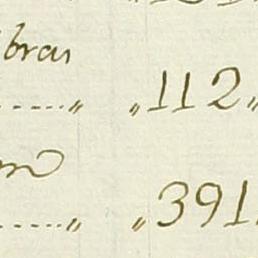 bras
.....〃 〃112〃
.....〃 〃391